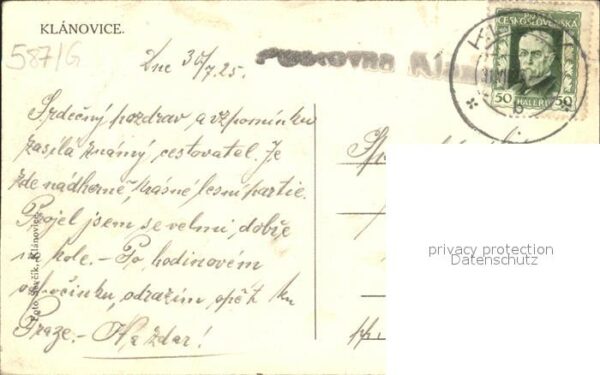 KLÁNOVICE.
587/G
Dne 30/7.25.
Poštovna Klán
POŠTA
ČESKOSLOVENSKÁ
50 HALERU 50
Srdečný pozdrav a vzpomínku
zasílá známý cestovatel. Je
zde nádherné, krásné lesní partie.
Projel jsem se velmi dobře
na kole. - Po hodinovém
odpočinku, odrazím opět ku
Praze. - Na zdar!
Klánovice
privacy protection
Datenschutz